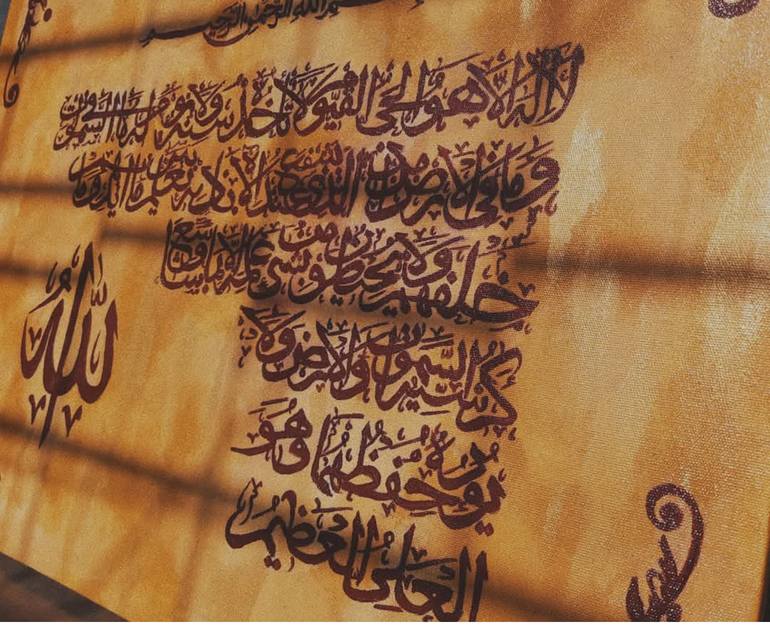 بسم الله الرحمن الرحيم
لا اله الا هو الحي القيوم لا تأخذه سنة ولا نوم له ما في السموت
وما في الارض من ذا الذي يشفع عنده الا باذنه يعلم ما بين ايديهم وما
خلفهم ولا يحيطون بشيء من علمه الا بما شاء وسع
كرسيه السموت والارض ولا
يؤده حفظهما وهو
العلي العظيم
الله